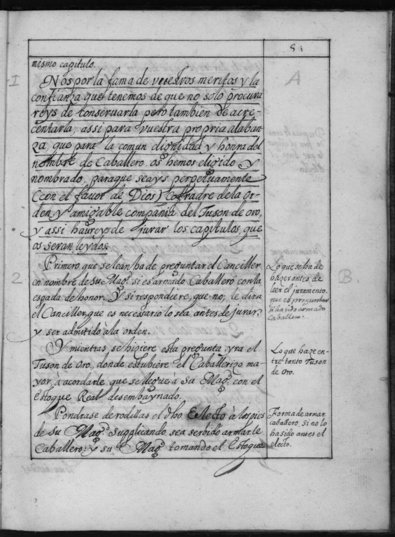 81
mismo capitulo.
Nos por la fama de vuestros meritos y la
confianza que tenemos de que no solo procura
reys de conseruarla pero tambien de acre
centarla; assi para vuestra propria alaban
za que para la comun dignidad y honrra del
nombre de Caballero. os hemos eligido y
nombrado, para que seays perpetuamente
(con el favor de Dios) cofradre de la or
den, y amigable compañia del Tuson de oro,
y assi haureys de jurar los capitulos, que
os seran leydos.
Primero que se lean ha de preguntar el Canciller
en nombre de su Magd. si es armado Caballero con la
espada de honor. Y si respondiere, que no; le dira
el Canciller que es necesario lo sea antes de jurar,
y ser admitido a la orden.
Y mientras se hiziere esta pregunta yra el
Tuson de Oro, donde estubiere el Caballerizo ma
yor, a acordarle que se llegue a su Magd. con el
estoque Real desembaynado.
Pondrase de rodillas el dho Electo a los pies
de su Magd. suplicando sea serbido armarle
Caballero; y su Magd. tomando el Estoque
1
A
2
B
Lo que se ha de
hacer antes de
leer el juramento,
que es preguntar
si ha sido armado
Caballero.
Lo que haze en
tre tanto Tuson
de Oro.
Forma de armar
caballero si no lo
ha sido antes el
electo.